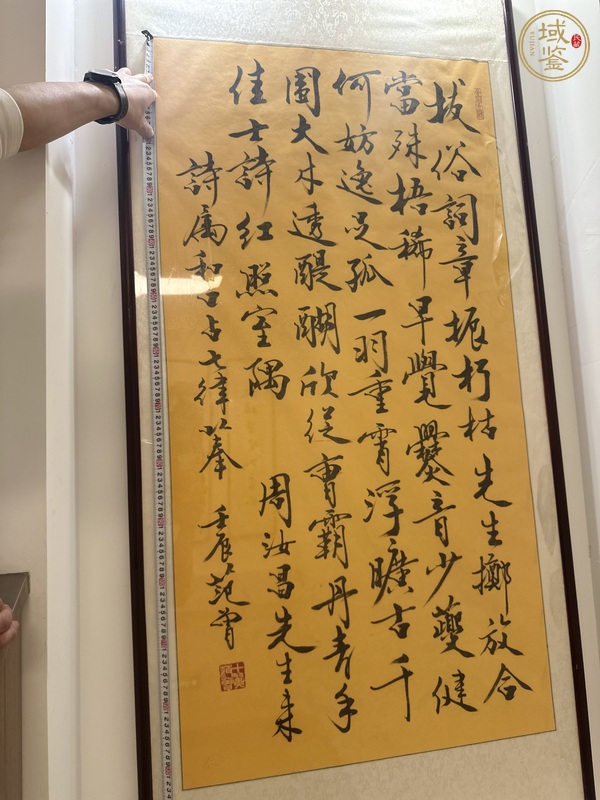 拔俗詞章振朽枯先生擲放合
當殊梧稀早覺爨音少夔健
何妨逸足孤一羽重霄浮曠古千
圍大木透醍醐欣從曹霸丹青手
佳士詩紅照室隅 周汝昌先生來
詩屬和口占七律以奉 壬辰范曾
域鉴
YUJIAN